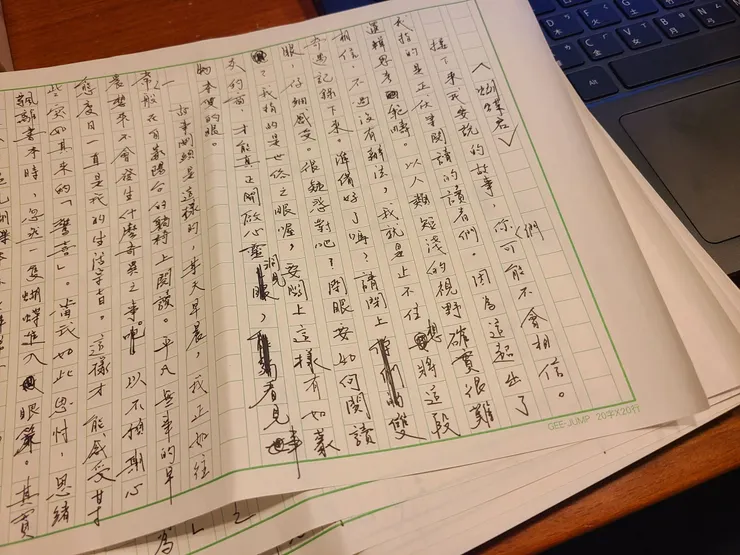 〈蝴蝶君〉
接下來我要說的故事,你們可能不會相信。
我指的是正伏案閱讀的讀者們。因為這超出了
邏輯思考範疇。以人類短淺的視野確實很難
相信。不過沒有辦法,我就是止不住想將這段
奇遇記錄下來。準備好了嗎?請閉上雙
眼,仔細感受。很疑惑對吧?閉眼要如何閱讀
?我指的是世俗之眼喔,要閉上這樣有如蒙
灰的窗,才能真正開啟心靈洞見,看見事
物本質的眼。
故事開頭是這樣的,某天早晨,我正如往
常一般在自家陽台的躺椅上閱讀。平凡無事的早
晨想來不會發生什麼奇異之事吧。以不預期心
態度日一直是我的生活宗旨。這樣才能感受甘
些突如其來的「驚喜」。當我如此思忖,思緒
飄離書本時,忽然一隻蝴蝶進入眼簾。其實
GEE-JUMP 20字X20行